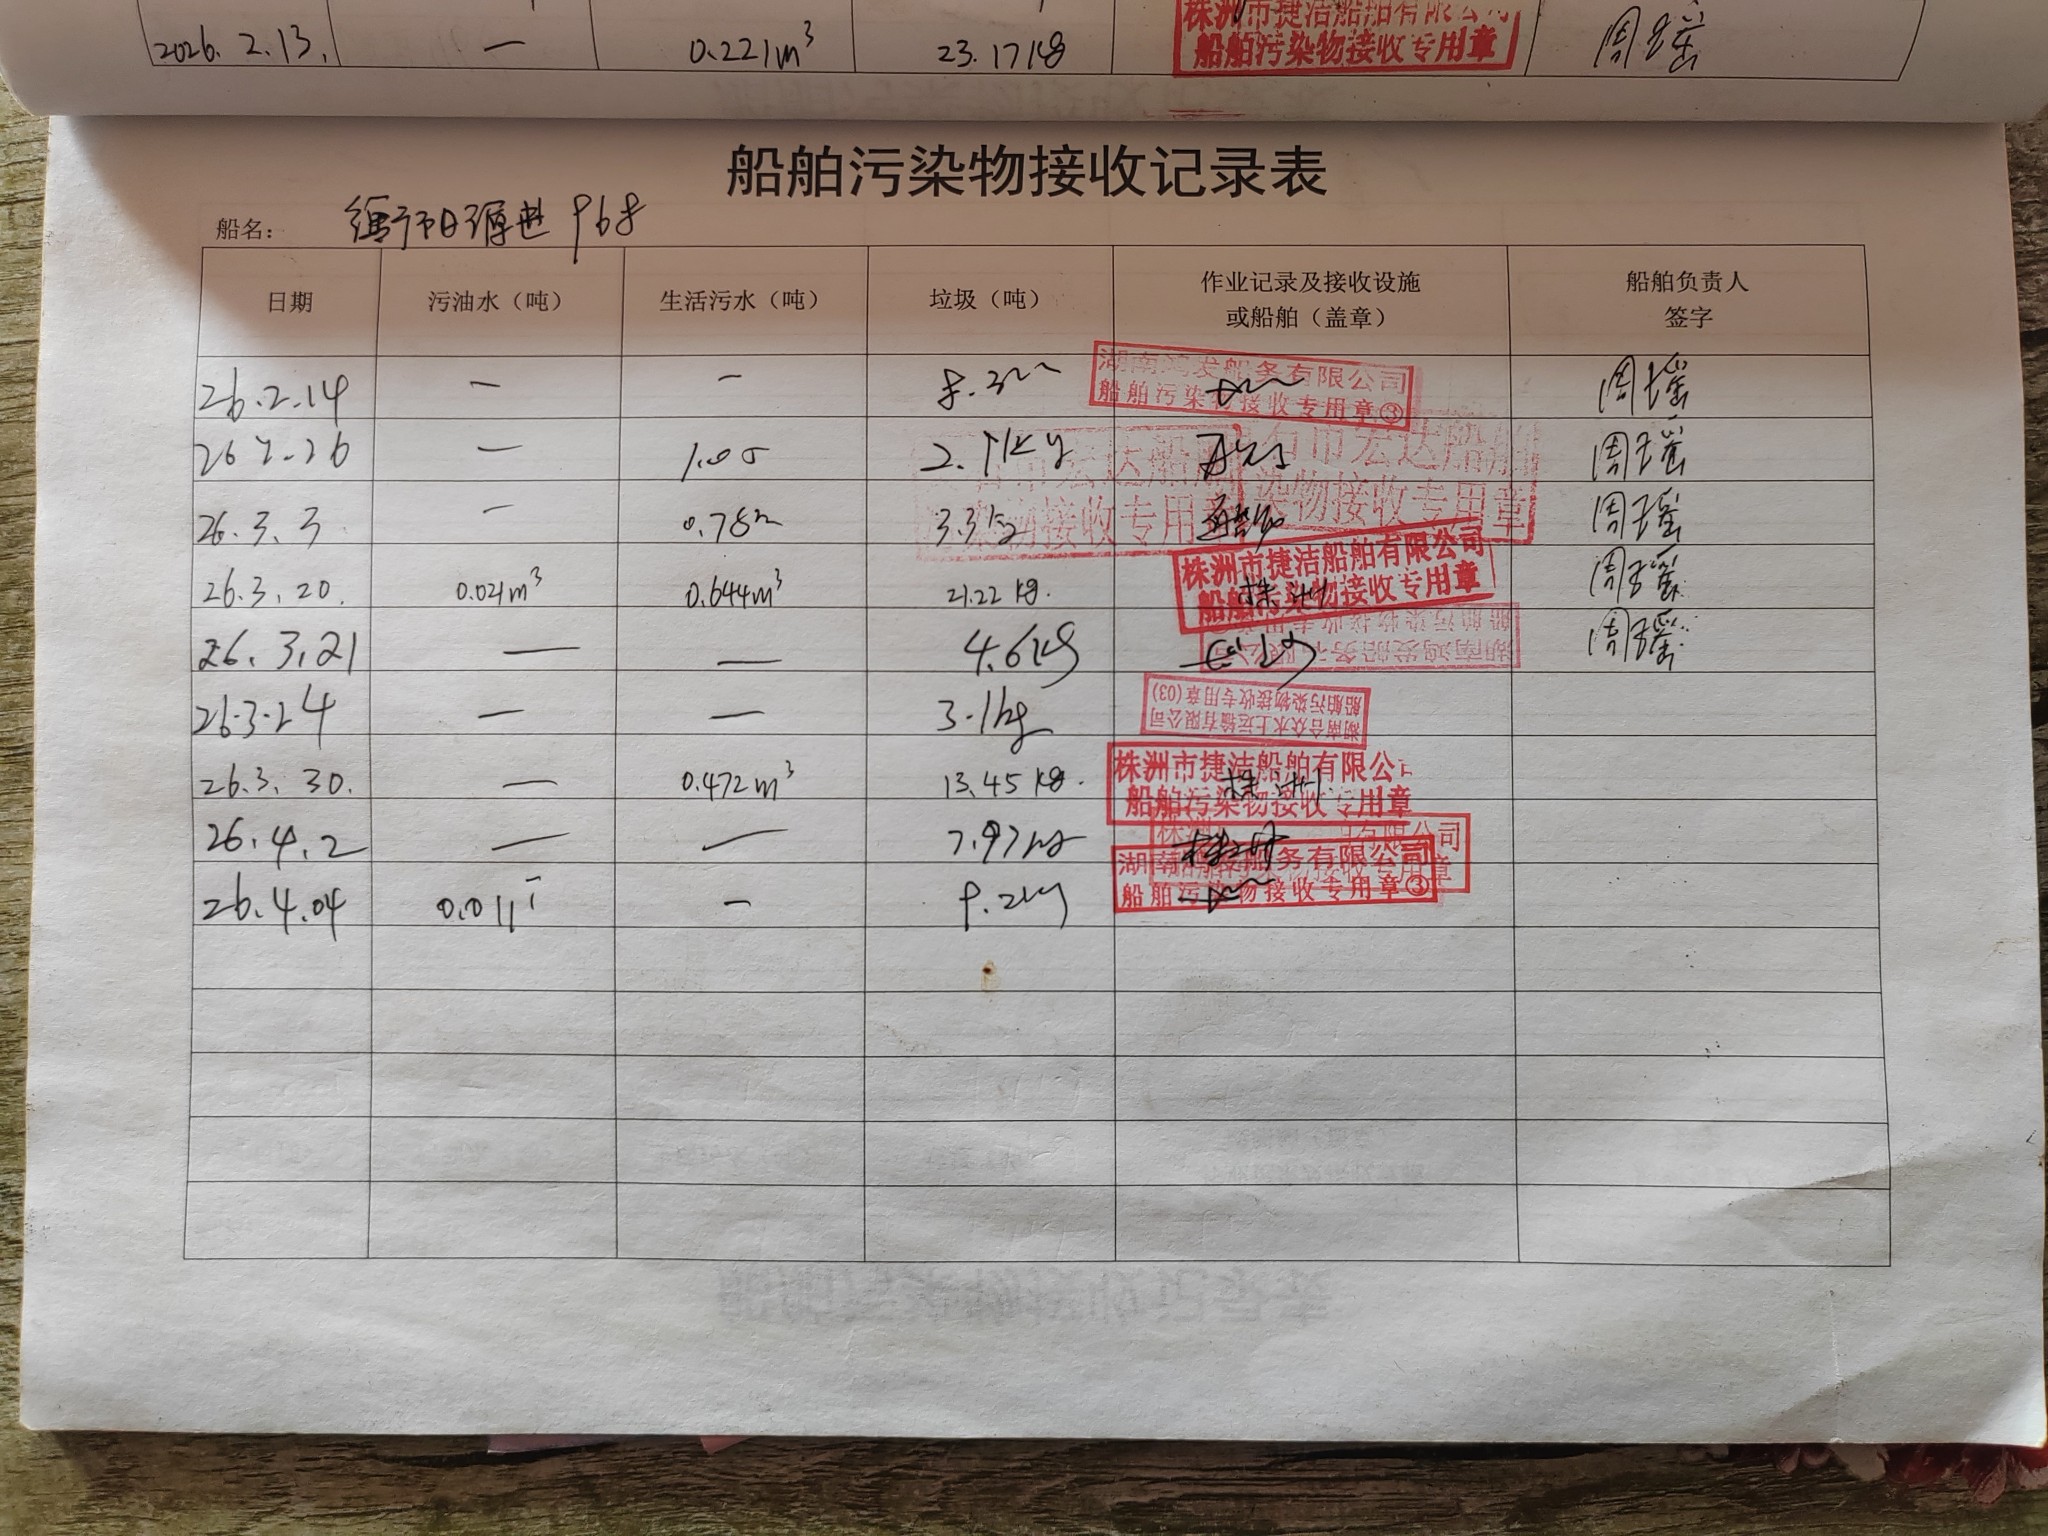 2026.2.13. — 0.221m³ 23.17kg 株洲市捷洁船舶有限公司 周瑶
船舶污染物接收专用章
船舶污染物接收记录表
船名： 968
日期 污油水（吨） 生活污水（吨） 垃圾（吨） 作业记录及接收设施或船舶（盖章） 船舶负责人签字
26.2.14 — — 8.3 湖南鸿发船务有限公司 船舶污染物接收专用章③ 周瑶
26.2.26 — 1.05 2.9kg 市宏达船舶 染物接收专用章 周瑶
26.3.3 — 0.78 3.3kg 周瑶
26.3.20. 0.021m³ 0.644m³ 21.22kg. 株洲市捷洁船舶有限公司 船舶污染物接收专用章 株洲 周瑶
26.3.21 — — 4.6kg 湖南鸿发船务有限公司 船舶污染物接收专用章 周瑶
26.3.24 — — 3.1kg 湖南合众水上运输有限公司 船舶污染物接收专用章(03)
26.3.30. — 0.472m³ 13.45kg. 株洲市捷洁船舶有限公司 船舶污染物接收专用章 株洲
26.4.2 — — 7.97kg 株洲
26.4.04 0.011 — 9.2kg 湖南鸿发船务有限公司 船舶污染物接收专用章③